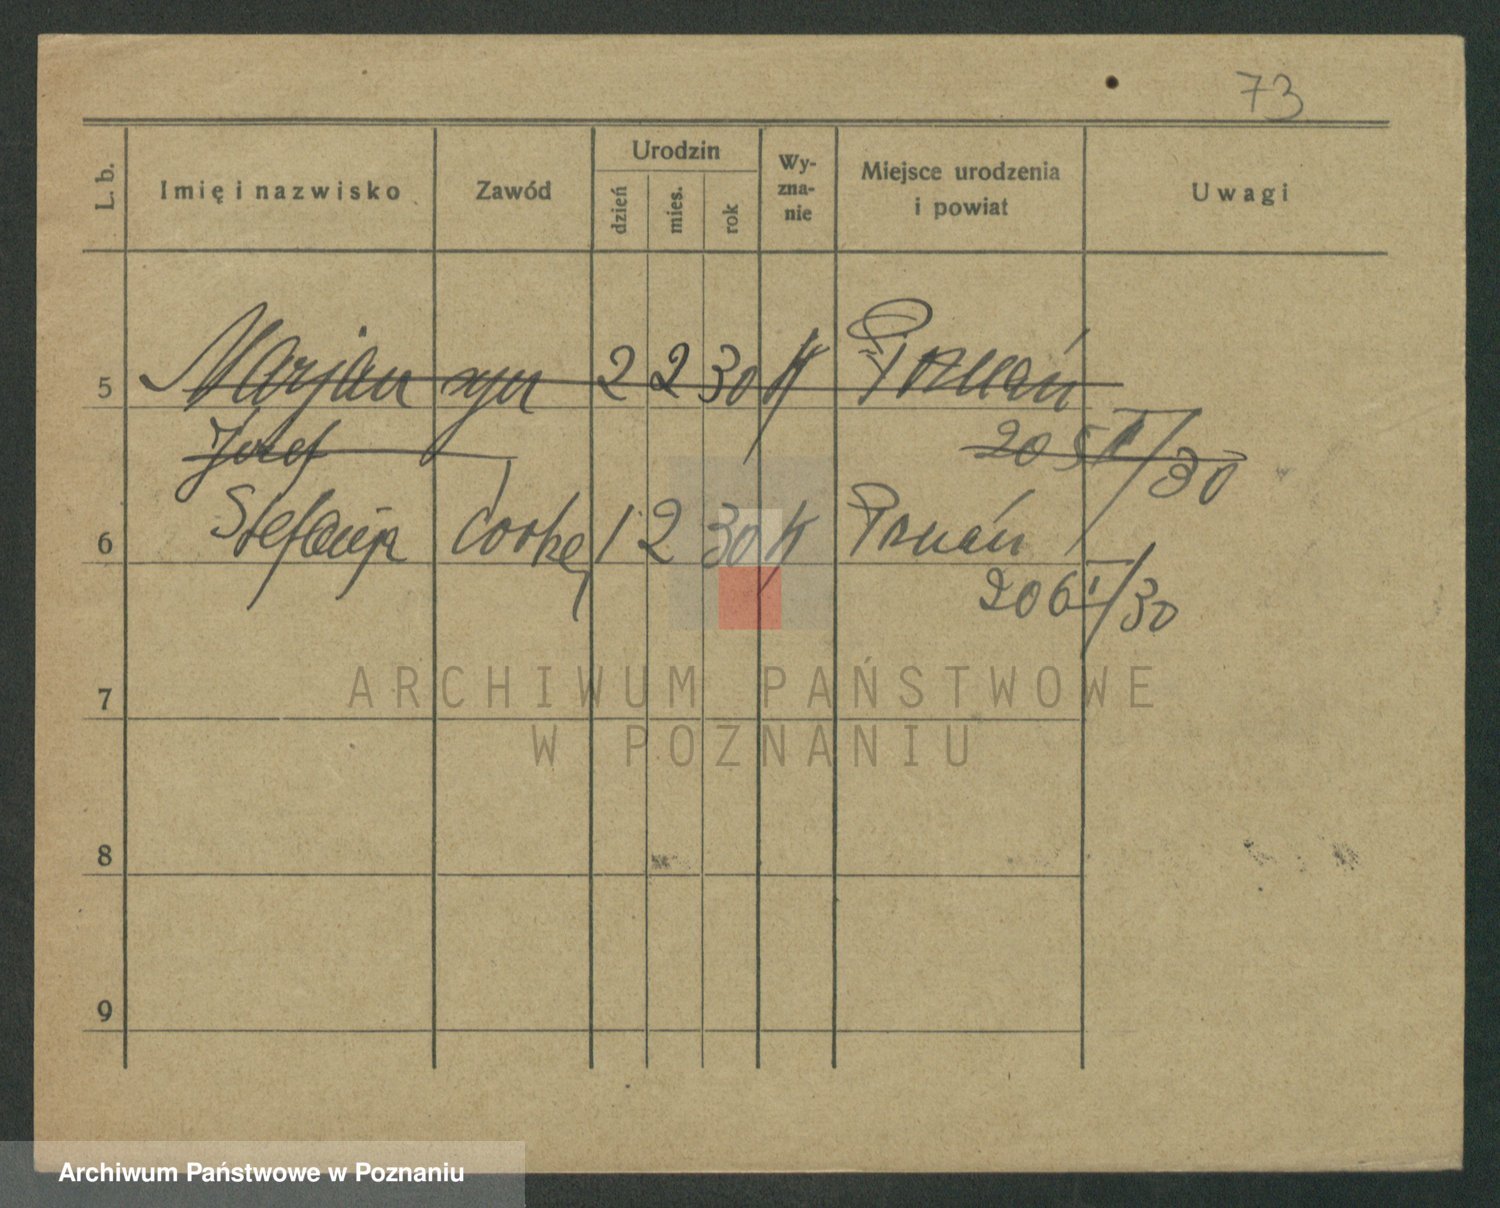 73
L. b. Imię i nazwisko Zawód Urodzin dzień mies. rok Wy-zna-nie Miejsce urodzenia i powiat Uwagi
5 Marjan syn 2 2 30 K Poznań
Józef 205 II/30
6 Stefanja córka 1 2 30 K Poznań
206 I/30
7
8
9
ARCHIWUM PAŃSTWOWE
W POZNANIU
Archiwum Państwowe w Poznaniu